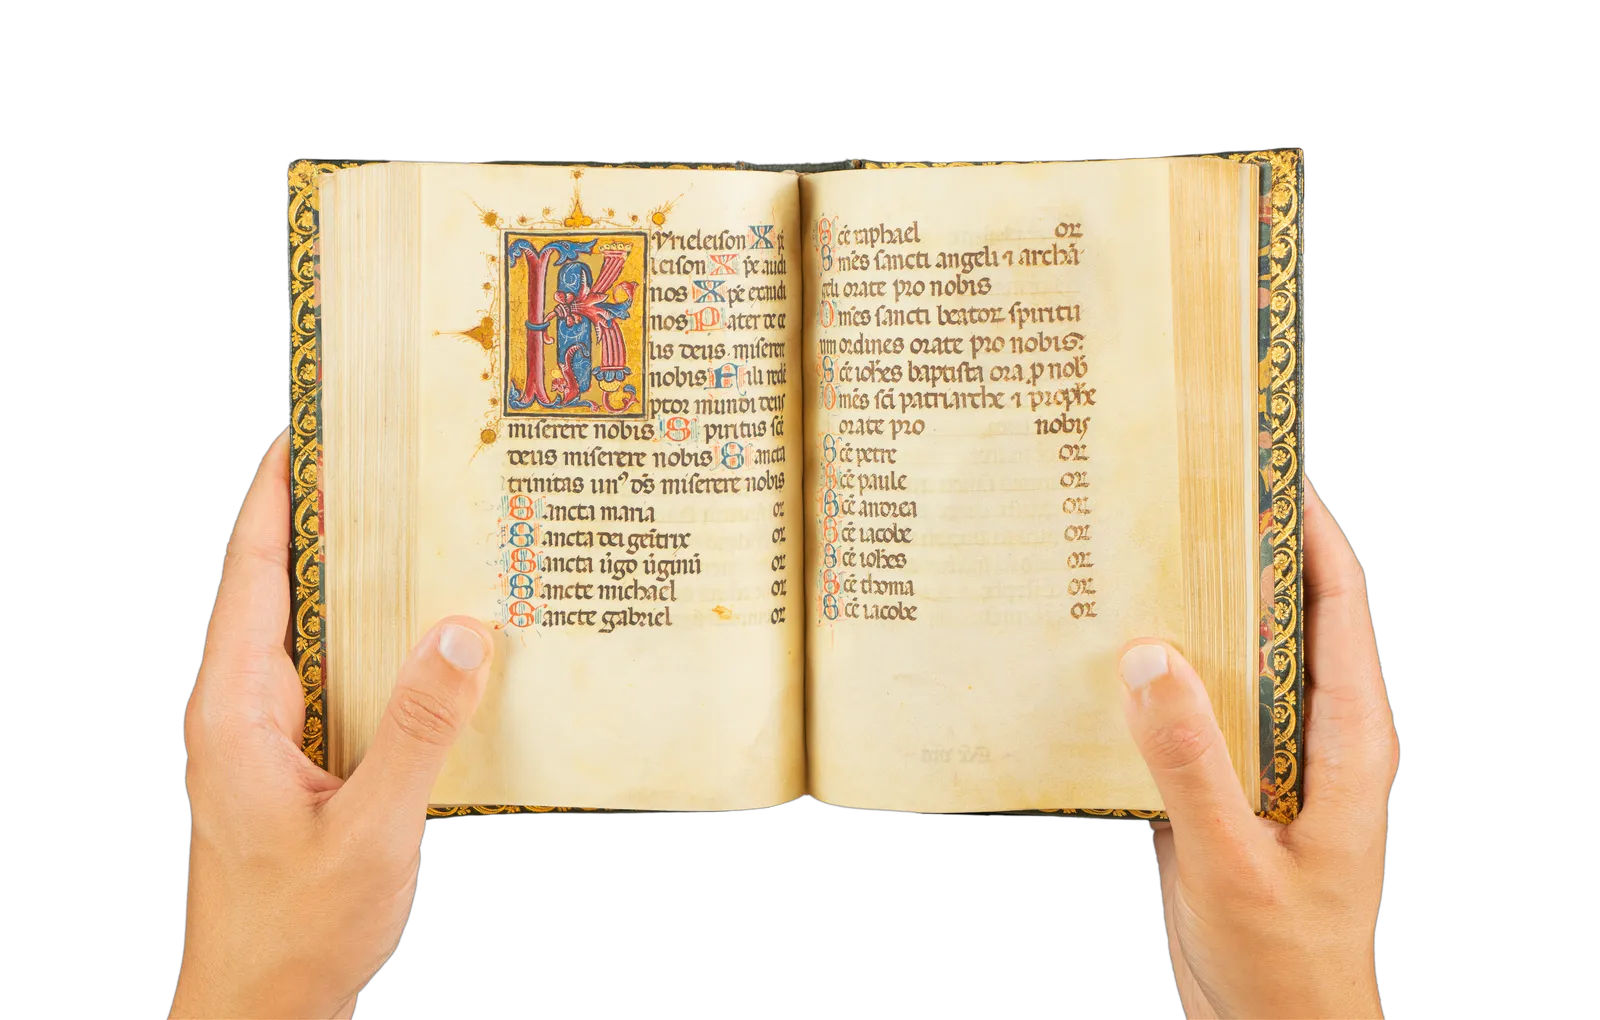 Kyrieleison Xp̄e
leison Xp̄e audi
nos Xp̄e exaudi
nos Pater de ce
lis deus. miserere
nobis Fili redē
ptor mundi deus
miserere nobis Spiritus sc̄e
deus miserere nobis Sancta
trinitas unꝰ ds̄ miserere nobis
Sancta maria or
Sancta dei genitrix or
Sancta v̄go v̄ginū or
Sancte michael or
Sancte gabriel or
Sc̄e raphael or
Om̄es sancti angeli ⁊ archā
geli orate pro nobis
Om̄es sancti beatoꝝ spiritu
um ordines orate pro nobis.
Sc̄e ioh̄es baptista ora p nob
Om̄es sc̄i patriarche ⁊ prophe
orate pro nobis
Sc̄e petre or
Sc̄e paule or
Sc̄e andrea or
Sc̄e iacobe or
Sc̄e ioh̄es or
Sc̄e thoma or
Sc̄e iacobe or